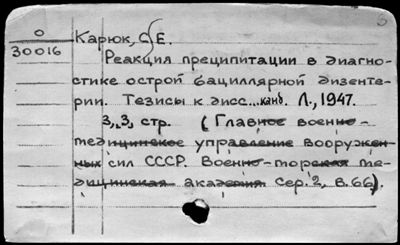 Б
0
30016
Карюк, С.Е.
Реакция преципитации в диагно-
стике острой бациллярной дизенте-
рии. Тезисы к дисс... канд. Л., 1947.
3,3, стр. (Главное военно-
медицинское управление вооружен-
ных сил СССР. Военно-морская ме-
дицинская академия Сер. 2, В.66).